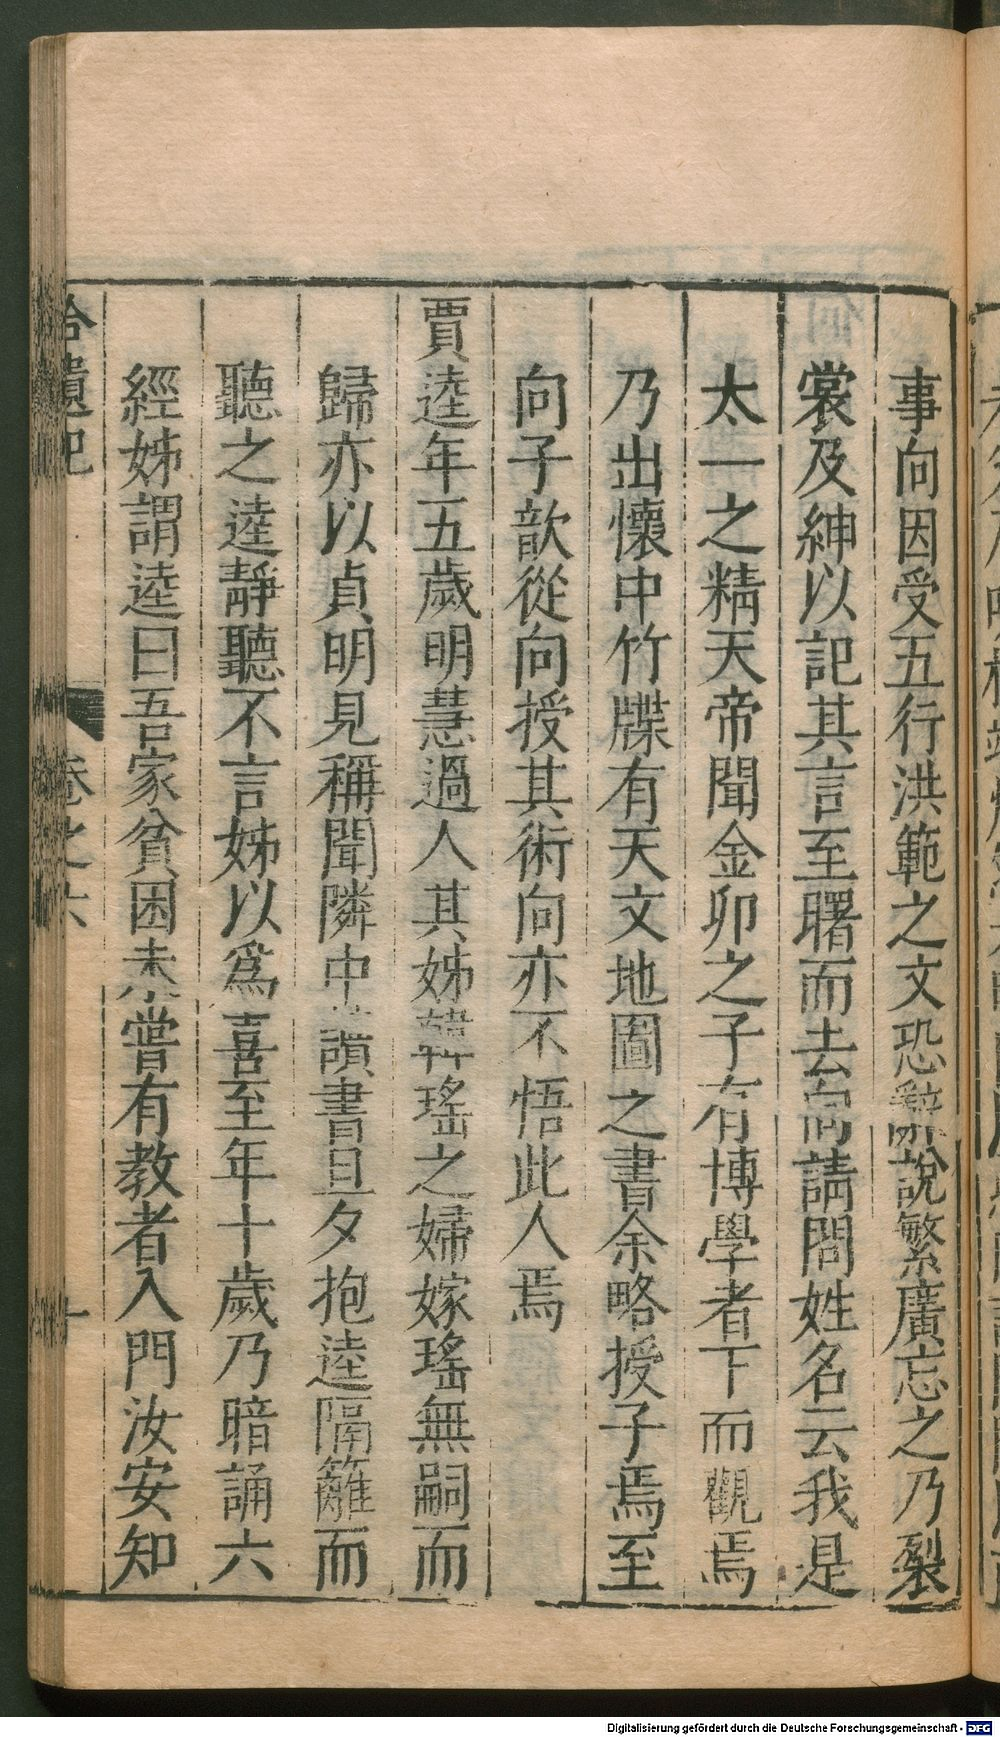 事向因受五行洪範之文恐辭說繁廣忘之乃裂
裳及紳以記其言至曙而去向請問姓名云我是
太一之精天帝聞金卯之子有博學者下而觀焉
乃出懷中竹牒有天文地圖之書余略授子焉至
向子歆從向授其術向亦不悟此人焉
賈逵年五歲明慧過人其姊韓瑤之婦嫁瑤無嗣而
歸亦以貞明見稱聞隣中讀書旦夕抱逵隔籬而
聽之逵靜聽不言姊以爲喜至年十歲乃暗誦六
經姊謂逵曰吾家貧困未嘗有教者入門汝安知
拾遺記 卷之六 十
Digitalisierung gefördert durch die Deutsche Forschungsgemeinschaft - DFG